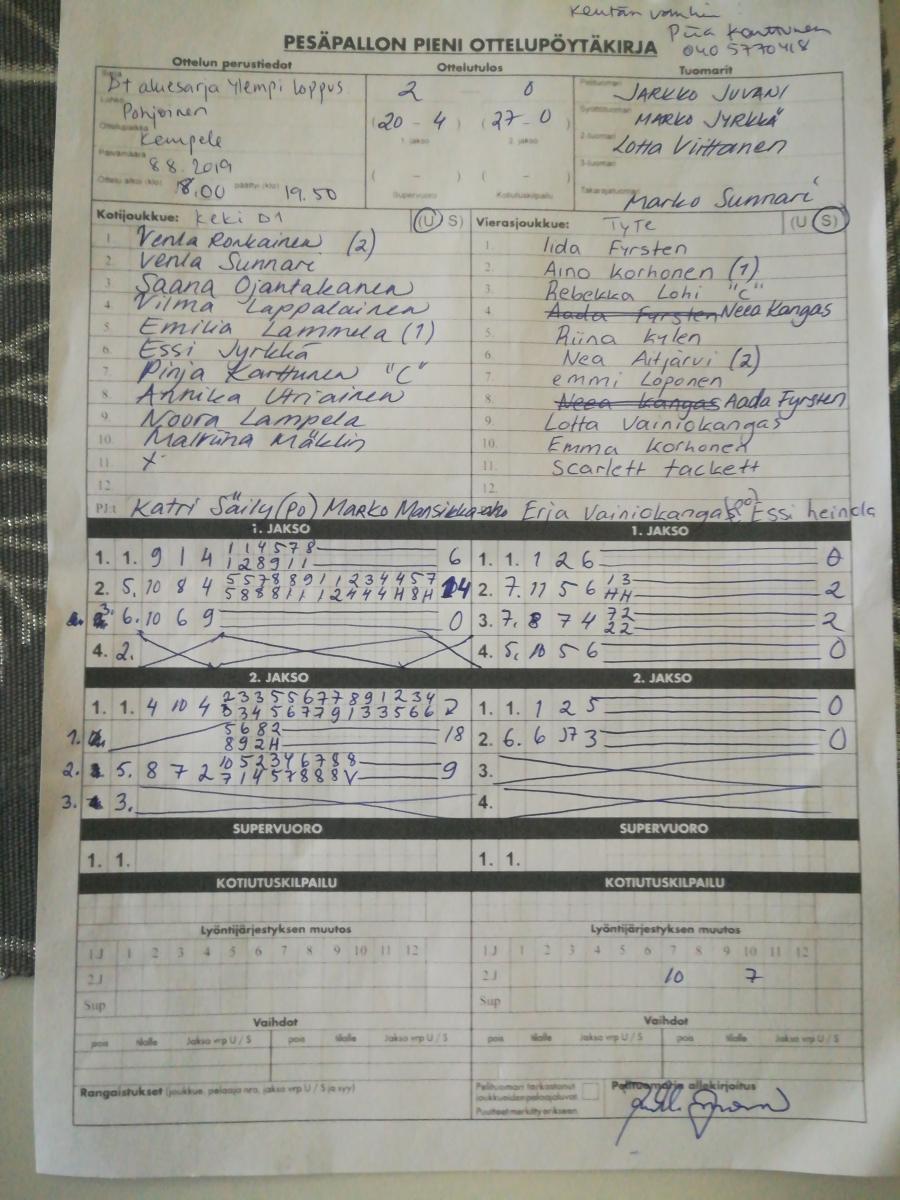 Kentän vanhin
Piia Karttunen
040 5770418
PESÄPALLON PIENI OTTELUPÖYTÄKIRJA
Ottelun perustiedot
Ottelutulos
Tuomarit
D+ aluesarja Ylempi loppus
Pohjoinen
Kempele
8.8.2019
Ottelu alkoi (klo) 18.00 päättyi (klo) 19.50
2 - 0
(20 - 4) (27 - 0)
1. jakso 2. jakso
( - ) ( - )
Supervuoro Kotiutuskilpailu
JARKKO JUVANI
MARKO JYRKKÄ
Lotta Virttanen
Marko Sunnari
Kotijoukkue: KeKi D1 (U S)
1. Venla Ronkainen (2)
2. Venla Sunnari
3. Saana Ojantakanen
4. Vilma Lappalainen
5. Emilia Lammela (1)
6. Essi Jyrkkä
7. Pinja Karttunen "C"
8. Annika Utriainen
9. Noora Lampela
10. Matviina Mäklin
11. X
12.
PJ:t Katri Säily (po) Marko Mansikka-aho
Vierasjoukkue: TyTe (U S)
1. Iida Fyrsten
2. Aino Korhonen (1)
3. Rebekka Lohi "C"
4. Aada Fyrsten Neea Kangas
5. Riina Kylen
6. Nea Aitjärvi (2)
7. emmi Loponen
8. Neea Kangas Aada Fyrsten
9. Lotta Vainiokangas
10. Emma Korhonen
11. Scarlett tackett
12.
Erja Vainiokangas (po) Essi heinola
1. JAKSO
1. 1. 9 1 4 1 1 4 5 7 8 6
1 2 8 9 1 1
2. 5. 10 8 4 5 5 7 8 8 9 1 1 2 3 4 4 5 7 14
5 8 8 8 1 1 1 2 4 4 4 H 8 H
3. 6. 10 6 9 0
4. 2.
1. JAKSO
1. 1. 1 2 6 0
2. 7. 11 5 6 1 3 2
H H
3. 7. 8 7 4 7 2 2
2 2
4. 5. 10 5 6 0
2. JAKSO
1. 1. 4 10 4 2 3 3 5 5 6 7 7 8 9 1 2 3 4
3 3 4 5 6 7 7 9 1 3 3 5 6 6
1. 5 6 8 2 18
8 9 2 H
2. 5. 8 7 2 10 5 2 3 4 6 7 8 8 9
7 1 4 5 7 8 8 8 V
3. 3.
2. JAKSO
1. 1. 1 2 5 0
2. 6. 6 J7 3 0
3.
4.
SUPERVUORO
1. 1.
SUPERVUORO
1. 1.
KOTIUTUSKILPAILU
KOTIUTUSKILPAILU
Lyöntijärjestyksen muutos
1J 1 2 3 4 5 6 7 8 9 10 11 12
2J
Sup
Lyöntijärjestyksen muutos
1J 1 2 3 4 5 6 7 8 9 10 11 12
2J 10 7
Sup
Vaihdot
pois tilalle Jakso vrp U / S pois tilalle Jakso vrp U / S
Vaihdot
pois tilalle Jakso vrp U / S pois tilalle Jakso vrp U / S
Rangaistukset (joukkue, pelaaja nro, jakso vrp U / S ja syy)
Pelituomari tarkastanut
joukkueiden pelaajaluvat.
Puutteet merkitty erikseen.
Pelituomarin allekirjoitus